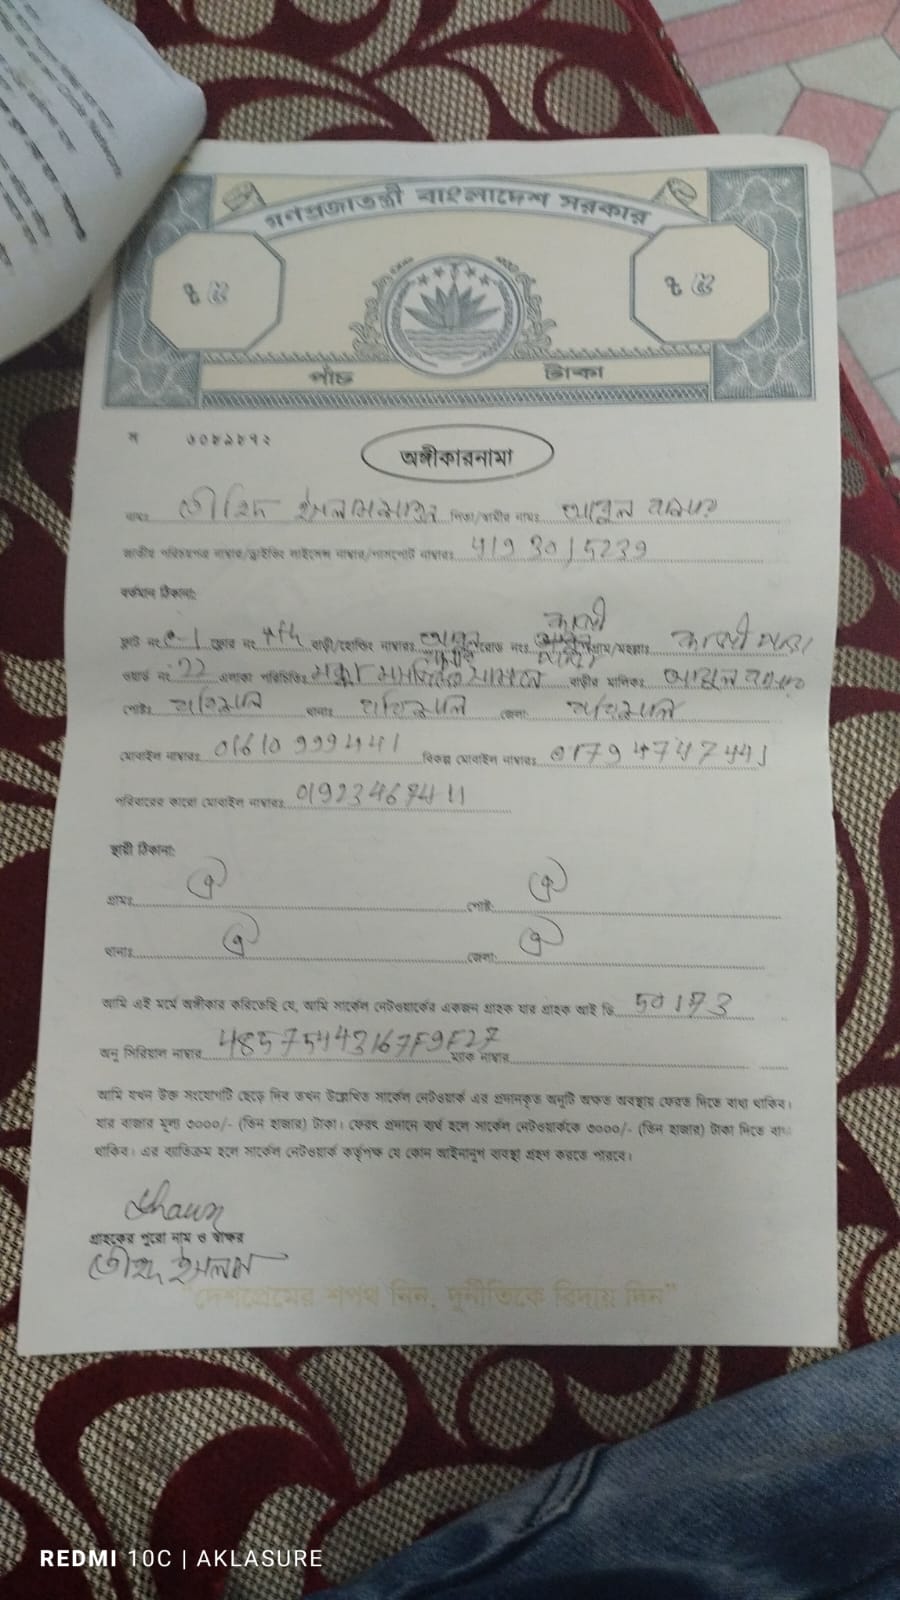 গণপ্রজাতন্ত্রী বাংলাদেশ সরকার
৳ ৫ ৳ ৫
পাঁচ টাকা
অঙ্গীকারনামা
নামঃ তৌহিদ ইসলাম পিতা/স্বামীর নামঃ আবুল বাসার
জাতীয় পরিচয়পত্র নাম্বার/ড্রাইভিং লাইসেন্স নাম্বার/পাসপোর্ট নাম্বারঃ
বর্তমান ঠিকানা:
ফ্লাট নংঃ e-1 ফ্লোর নং 4th বাড়ী/হোল্ডিং নাম্বারঃ রোড নংঃ গ্রাম/মহল্লাঃ
ওয়ার্ড নং 22 এলাকা পরিচিতিঃ মক্কা মসজিদের সামনে বাড়ীর মালিকঃ আবুল বাসার
পোষ্টঃ বরিশাল থানাঃ বরিশাল জেলা: বরিশাল
মোবাইল নাম্বারঃ বিকল্প মোবাইল নাম্বারঃ
পরিবারের কারো মোবাইল নাম্বারঃ
স্থায়ী ঠিকানা:
গ্রামঃ ঐ পোষ্ট: ঐ
থানাঃ ঐ জেলা: ঐ
আমি এই মর্মে অঙ্গীকার করিতেছি যে, আমি সার্কেল নেটওয়ার্কের একজন গ্রাহক যার গ্রাহক আই ডি 50173
অনু সিরিয়াল নাম্বার 48575443167F9F27 ম্যাক নাম্বার
আমি যখন উক্ত সংযোগটি ছেড়ে দিব তখন উল্লেখিত সার্কেল নেটওয়ার্ক এর প্রদানকৃত অনুটি অক্ষত অবস্থায় ফেরত দিতে বাধ্য থাকিব।
যার বাজার মূল্য ৩০০০/- (তিন হাজার) টাকা। ফেরৎ প্রদানে ব্যর্থ হলে সার্কেল নেটওয়ার্ককে ৩০০০/- (তিন হাজার) টাকা দিতে বাধ্য
থাকিব। এর ব্যতিক্রম হলে সার্কেল নেটওয়ার্ক কর্তৃপক্ষ যে কোন আইনানুগ ব্যবস্থা গ্রহণ করতে পারবে।
Shawn
গ্রাহকের পুরো নাম ও স্বাক্ষর
তৌহিদ ইসলাম
"দেশপ্রেমের শপথ নিন, দুর্নীতিকে বিদায় দিন"
REDMI 10C | AKLASURE